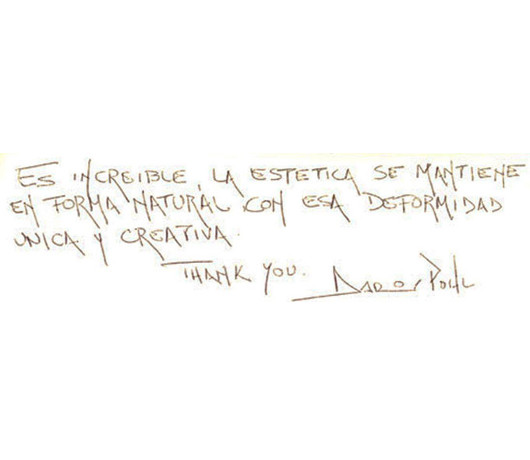 ES INCREIBLE, LA ESTETICA SE MANTIENE
EN FORMA NATURAL CON ESA DEFORMIDAD
UNICA Y CREATIVA.
THANK YOU.